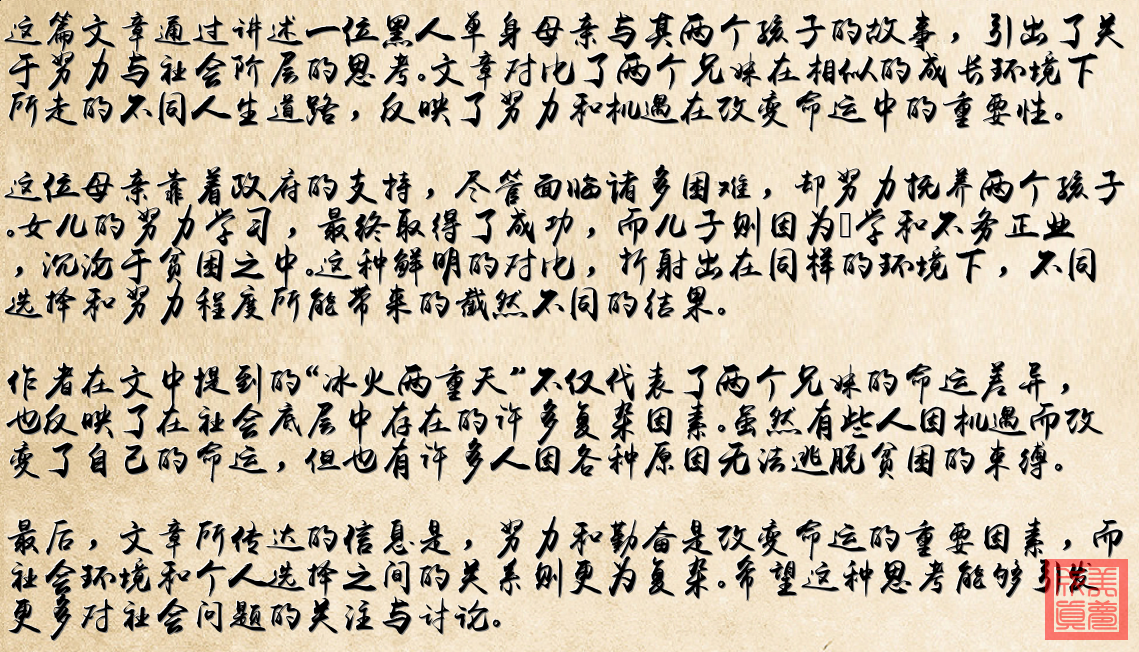 这篇文章通过讲述一位黑人单身母亲与其两个孩子的故事，引出了关
于努力与社会阶层的思考。文章对比了两个兄妹在相似的成长环境下
所走的不同人生道路，反映了努力和机遇在改变命运中的重要性。
这位母亲靠着政府的支持，尽管面临诸多困难，却努力抚养两个孩子
。女儿的努力学习，最终取得了成功，而儿子则因为学和不务正业
，沉沦于贫困之中。这种鲜明的对比，折射出在同样的环境下，不同
选择和努力程度所能带来的截然不同的结果。
作者在文中提到的“冰火两重天”不仅代表了两个兄妹的命运差异，
也反映了在社会底层中存在的许多复杂因素。虽然有些人因机遇而改
变了自己的命运，但也有许多人因各种原因无法逃脱贫困的束缚。
最后，文章所传达的信息是，努力和勤奋是改变命运的重要因素，而
社会环境和个人选择之间的关系则更为复杂。希望这种思考能够引发
更多对社会问题的关注与讨论。